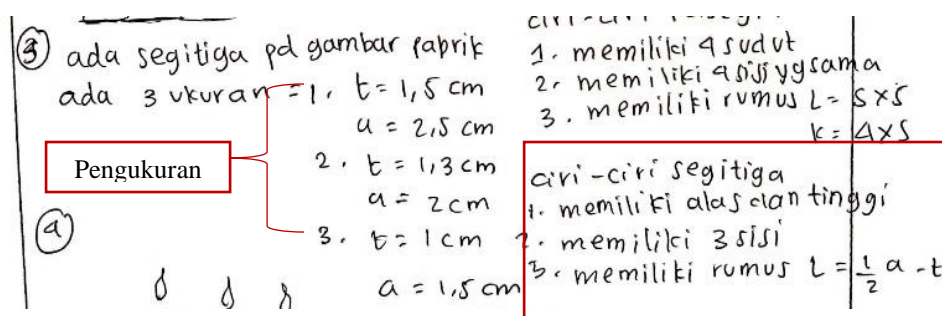 ③ ada segitiga pd gambar pabrik
ada 3 ukuran = 1. t = 1,5 cm
a = 2,5 cm
2. t = 1,3 cm
a = 2 cm
3. t = 1 cm
a = 1,5 cm
Pengukuran
④
1. memiliki 4 sudut
2. memiliki 4 sisi yg sama
3. memiliki rumus L = S x S
K = 4 x S
ciri-ciri segitiga
1. memiliki alas dan tinggi
2. memiliki 3 sisi
3. memiliki rumus L = 1/2 a . t